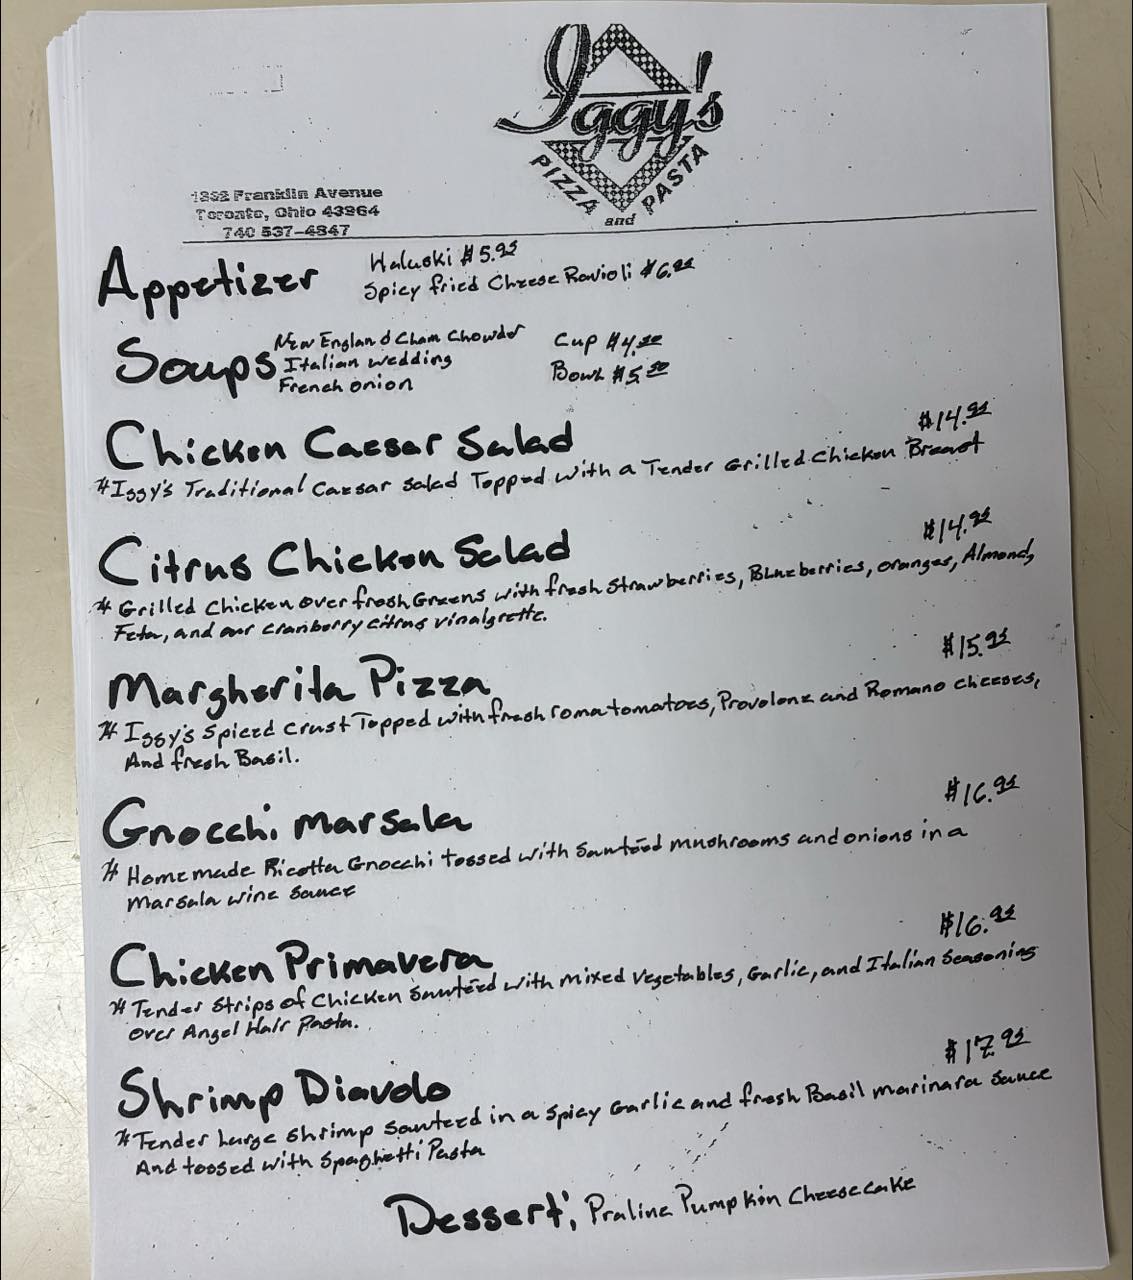 Iggy's
PIZZA and PASTA
1352 Franklin Avenue
Toronto, Ohio 43964
740 537-4847
Appetizer
Haluski $5.95
Spicy fried Cheese Ravioli $6.95
Soups
New England Clam Chowder
Italian wedding
French onion
Cup $4.50
Bowl $5.50
Chicken Caesar Salad $14.95
*Iggy's Traditional Caesar salad Topped with a Tender Grilled Chicken Breast
Citrus Chicken Salad $14.95
* Grilled Chicken over fresh Greens with fresh Strawberries, Blueberries, oranges, Almond,
Feta, and our cranberry citrus vinaigrette.
Margherita Pizza $15.95
* Iggy's Spiced Crust Topped with fresh roma tomatoes, Provolone and Romano cheeses,
And fresh Basil.
Gnocchi Marsala $16.95
* Homemade Ricotta Gnocchi tossed with Sautéed mushrooms and onions in a
Marsala wine sauce
Chicken Primavera $16.95
* Tender Strips of Chicken Sautéed with mixed Vegetables, Garlic, and Italian Seasonings
over Angel Hair Pasta.
Shrimp Diavolo $17.95
*Tender Large Shrimp Sauteed in a Spicy Garlic and fresh Basil marinara Sauce
And tossed with Spaghetti Pasta
Dessert; Praline Pumpkin Cheesecake